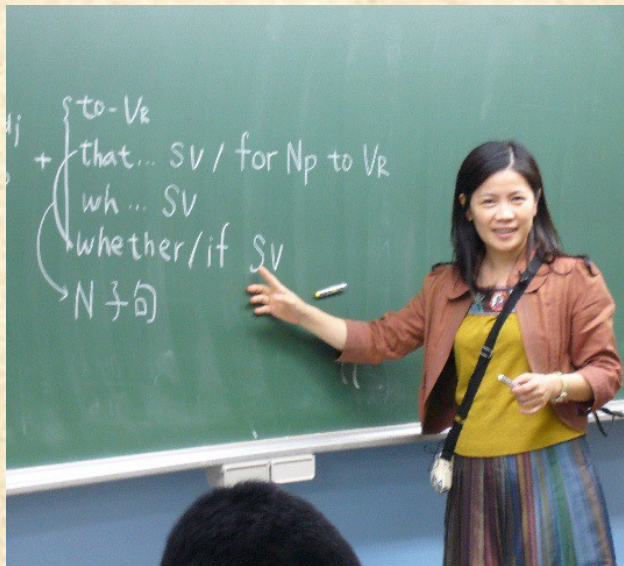 to-VR
+ that... SV / for Np to VR
wh... SV
whether/if SV
N子句